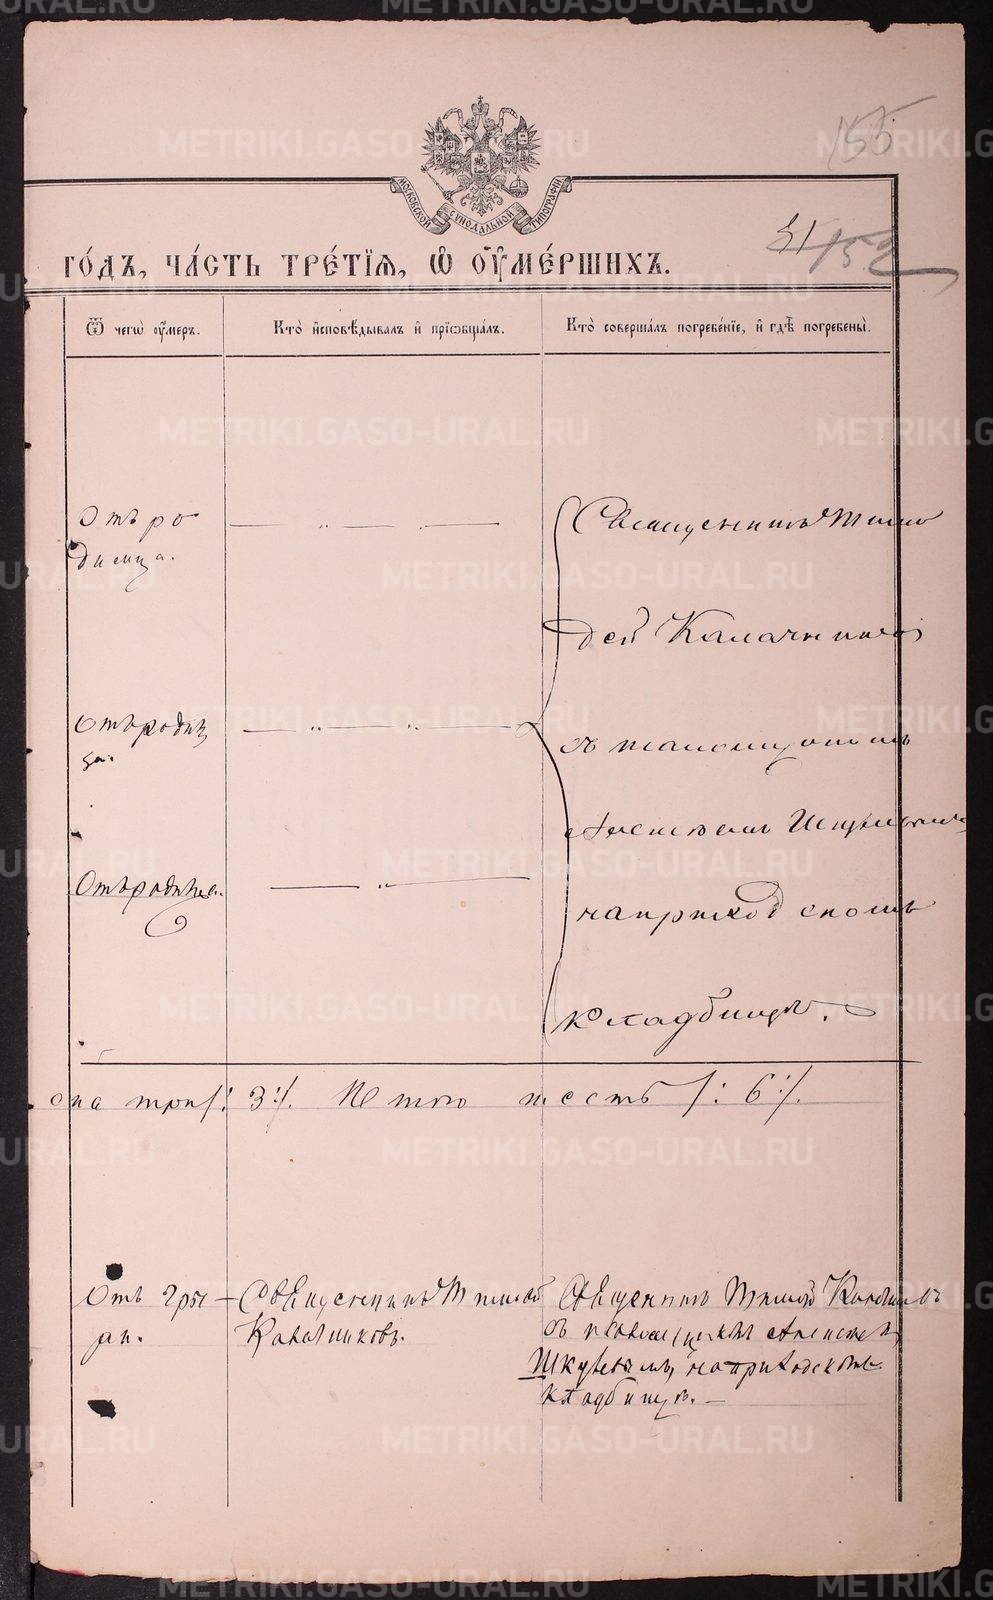 155
МОСКОВСКОЙ СѴНОДАЛЬНОЙ ТИПОГРАФІИ
31 152
ГО́ДЪ, ЧА́СТЬ ТРЕ́ТІЯ, Ѡ҆ ОУ҆МЕ́РШИХЪ.
Ѿ чегѡ̀ оу҆́меръ.
Кто̀ и҆сповѣ́дывалъ и҆ прїѡбща́лъ.
Кто̀ соверша́лъ погребе́нїе, и҆ гдѣ̀ погребены̀.
Отъ ро
димца.
Священникъ Тимо
фей Калачников
съ псаломщикомъ
Алексѣемъ Шкулевымъ
на приходскомъ
кладбищѣ.
Отъ родим
ца.
Отъ родимца.
ска три /: 3 :/. Итого шесть /: 6 :/.
Отъ гры-
жи.
Священникъ Тимофей
Калачниковъ.
Священникъ Тимофей Калачниковъ
съ псаломщикомъ Алексѣемъ
Шкулевымъ, на приходскомъ
кладбищѣ.
METRIKI.GASO-URAL.RU